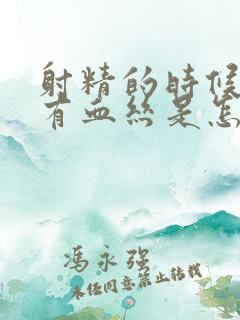 射精的时候
有血丝是怎
冯永强
未经同意禁止转载